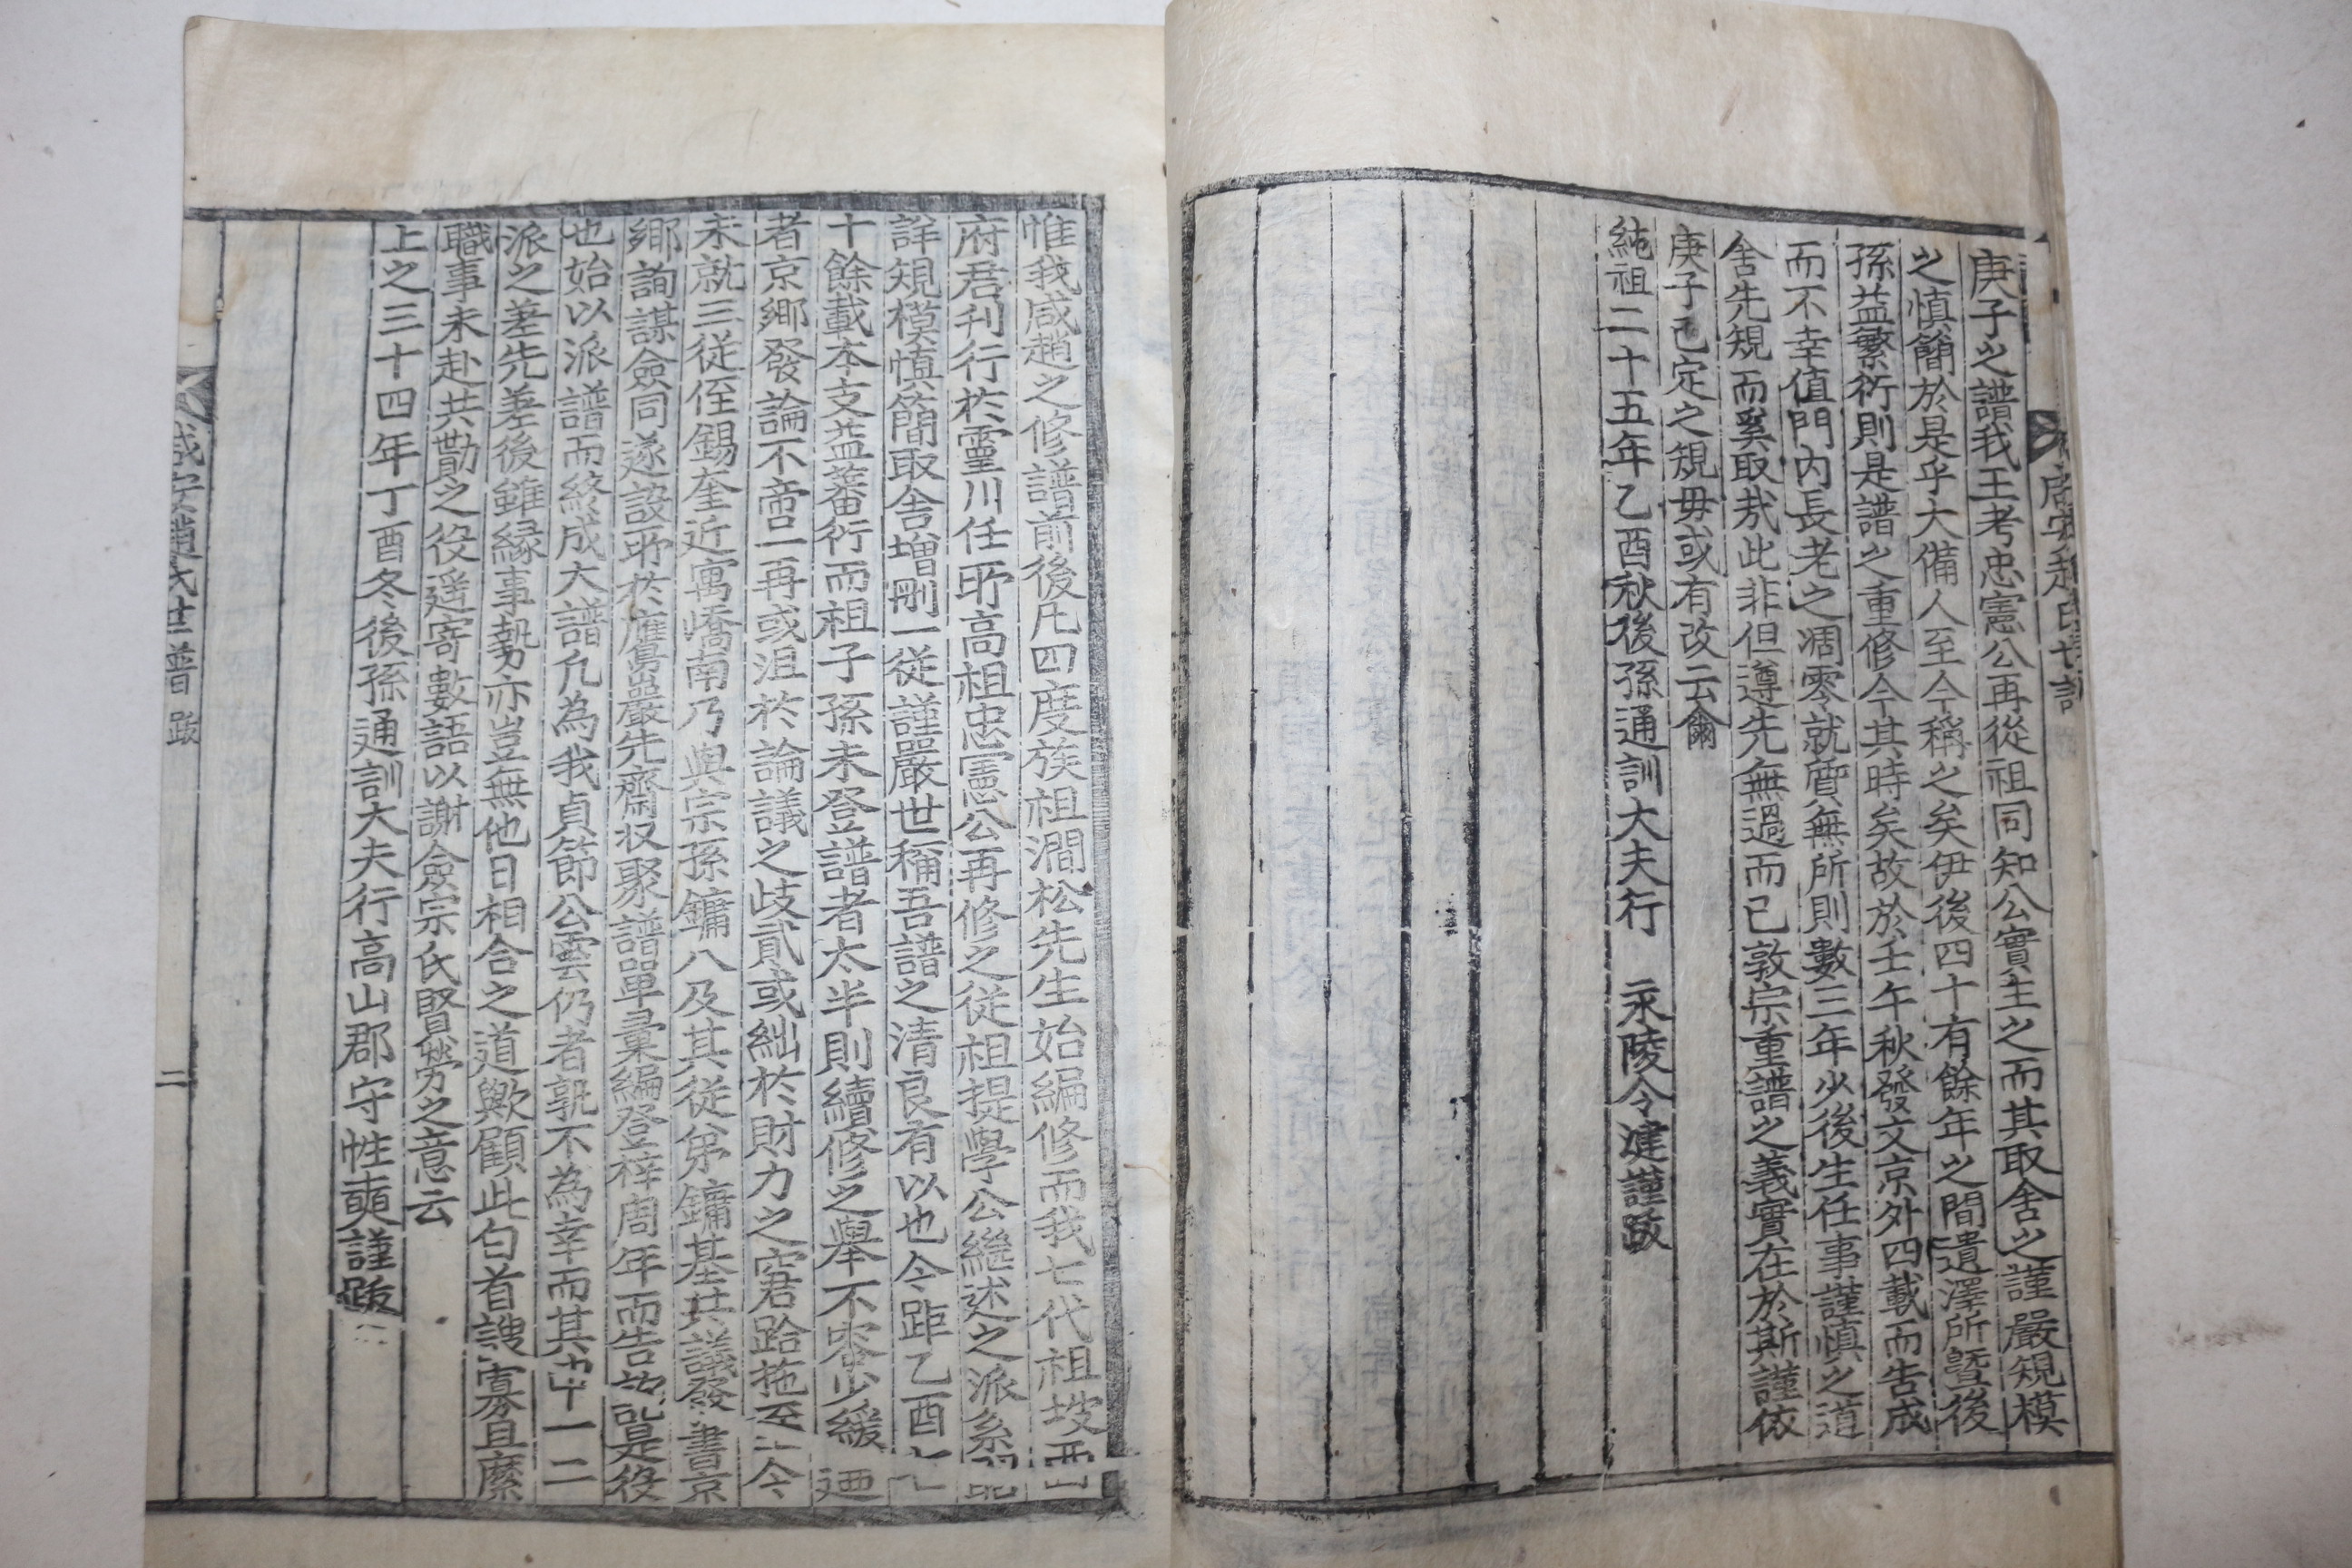 庚子之譜我王考忠憲公再從祖同知公實主之而其取舍之謹嚴規模
之愼簡於是乎大備人至今稱之矣伊後四十有餘年之間遺澤所曁後
孫益繁衍則是譜之重修今其時矣故於壬午秋發文京外四載而告成
而不幸値門內長老之凋零就質無所則數三年少後生任事謹愼之道
舍先規而奚取㢤此非但遵先無過而已敦宗重譜之義實在於斯謹依
庚子已定之規毋或有改云爾
純祖二十五年乙酉秋後孫通訓大夫行 永陵令 謹跋
惟我咸趙之修譜前後凡四度族祖澗松先生始編修而我七代祖坡西
府君刋行於靈川任所高祖忠憲公再修之從祖提學公繼述之派系
詳規模愼簡取舍增刪一從謹嚴世稱吾譜之清良有以也今距乙酉七
十餘載本支益蕃衍而祖子孫未登譜者太半則續修之擧不容少緩 廼
者京鄉發論不啻一再或沮於論議之歧貳或絀於財力之窘跲拖至今
未就三從侄錫奎近寓嶠南乃與宗孫鏞八及其從弟鏞基共議發書京
鄉詢謀僉同遂設所於鷹巖先齋收聚譜單彙編登梓周年而告 是役
也始以派譜而終成大譜凡為我貞節公雲仍者孰不為幸而其 一二
派之差先差後雖緣事勢亦豈無他日相合之道歟顧此白首謏寡且縻
職事未赴共勷之役遥寄數語以謝僉宗氏賢勞之意云
上之三十四年丁酉冬後孫通訓大夫行高山郡守性 謹跋
咸安趙氏世譜 跋 二